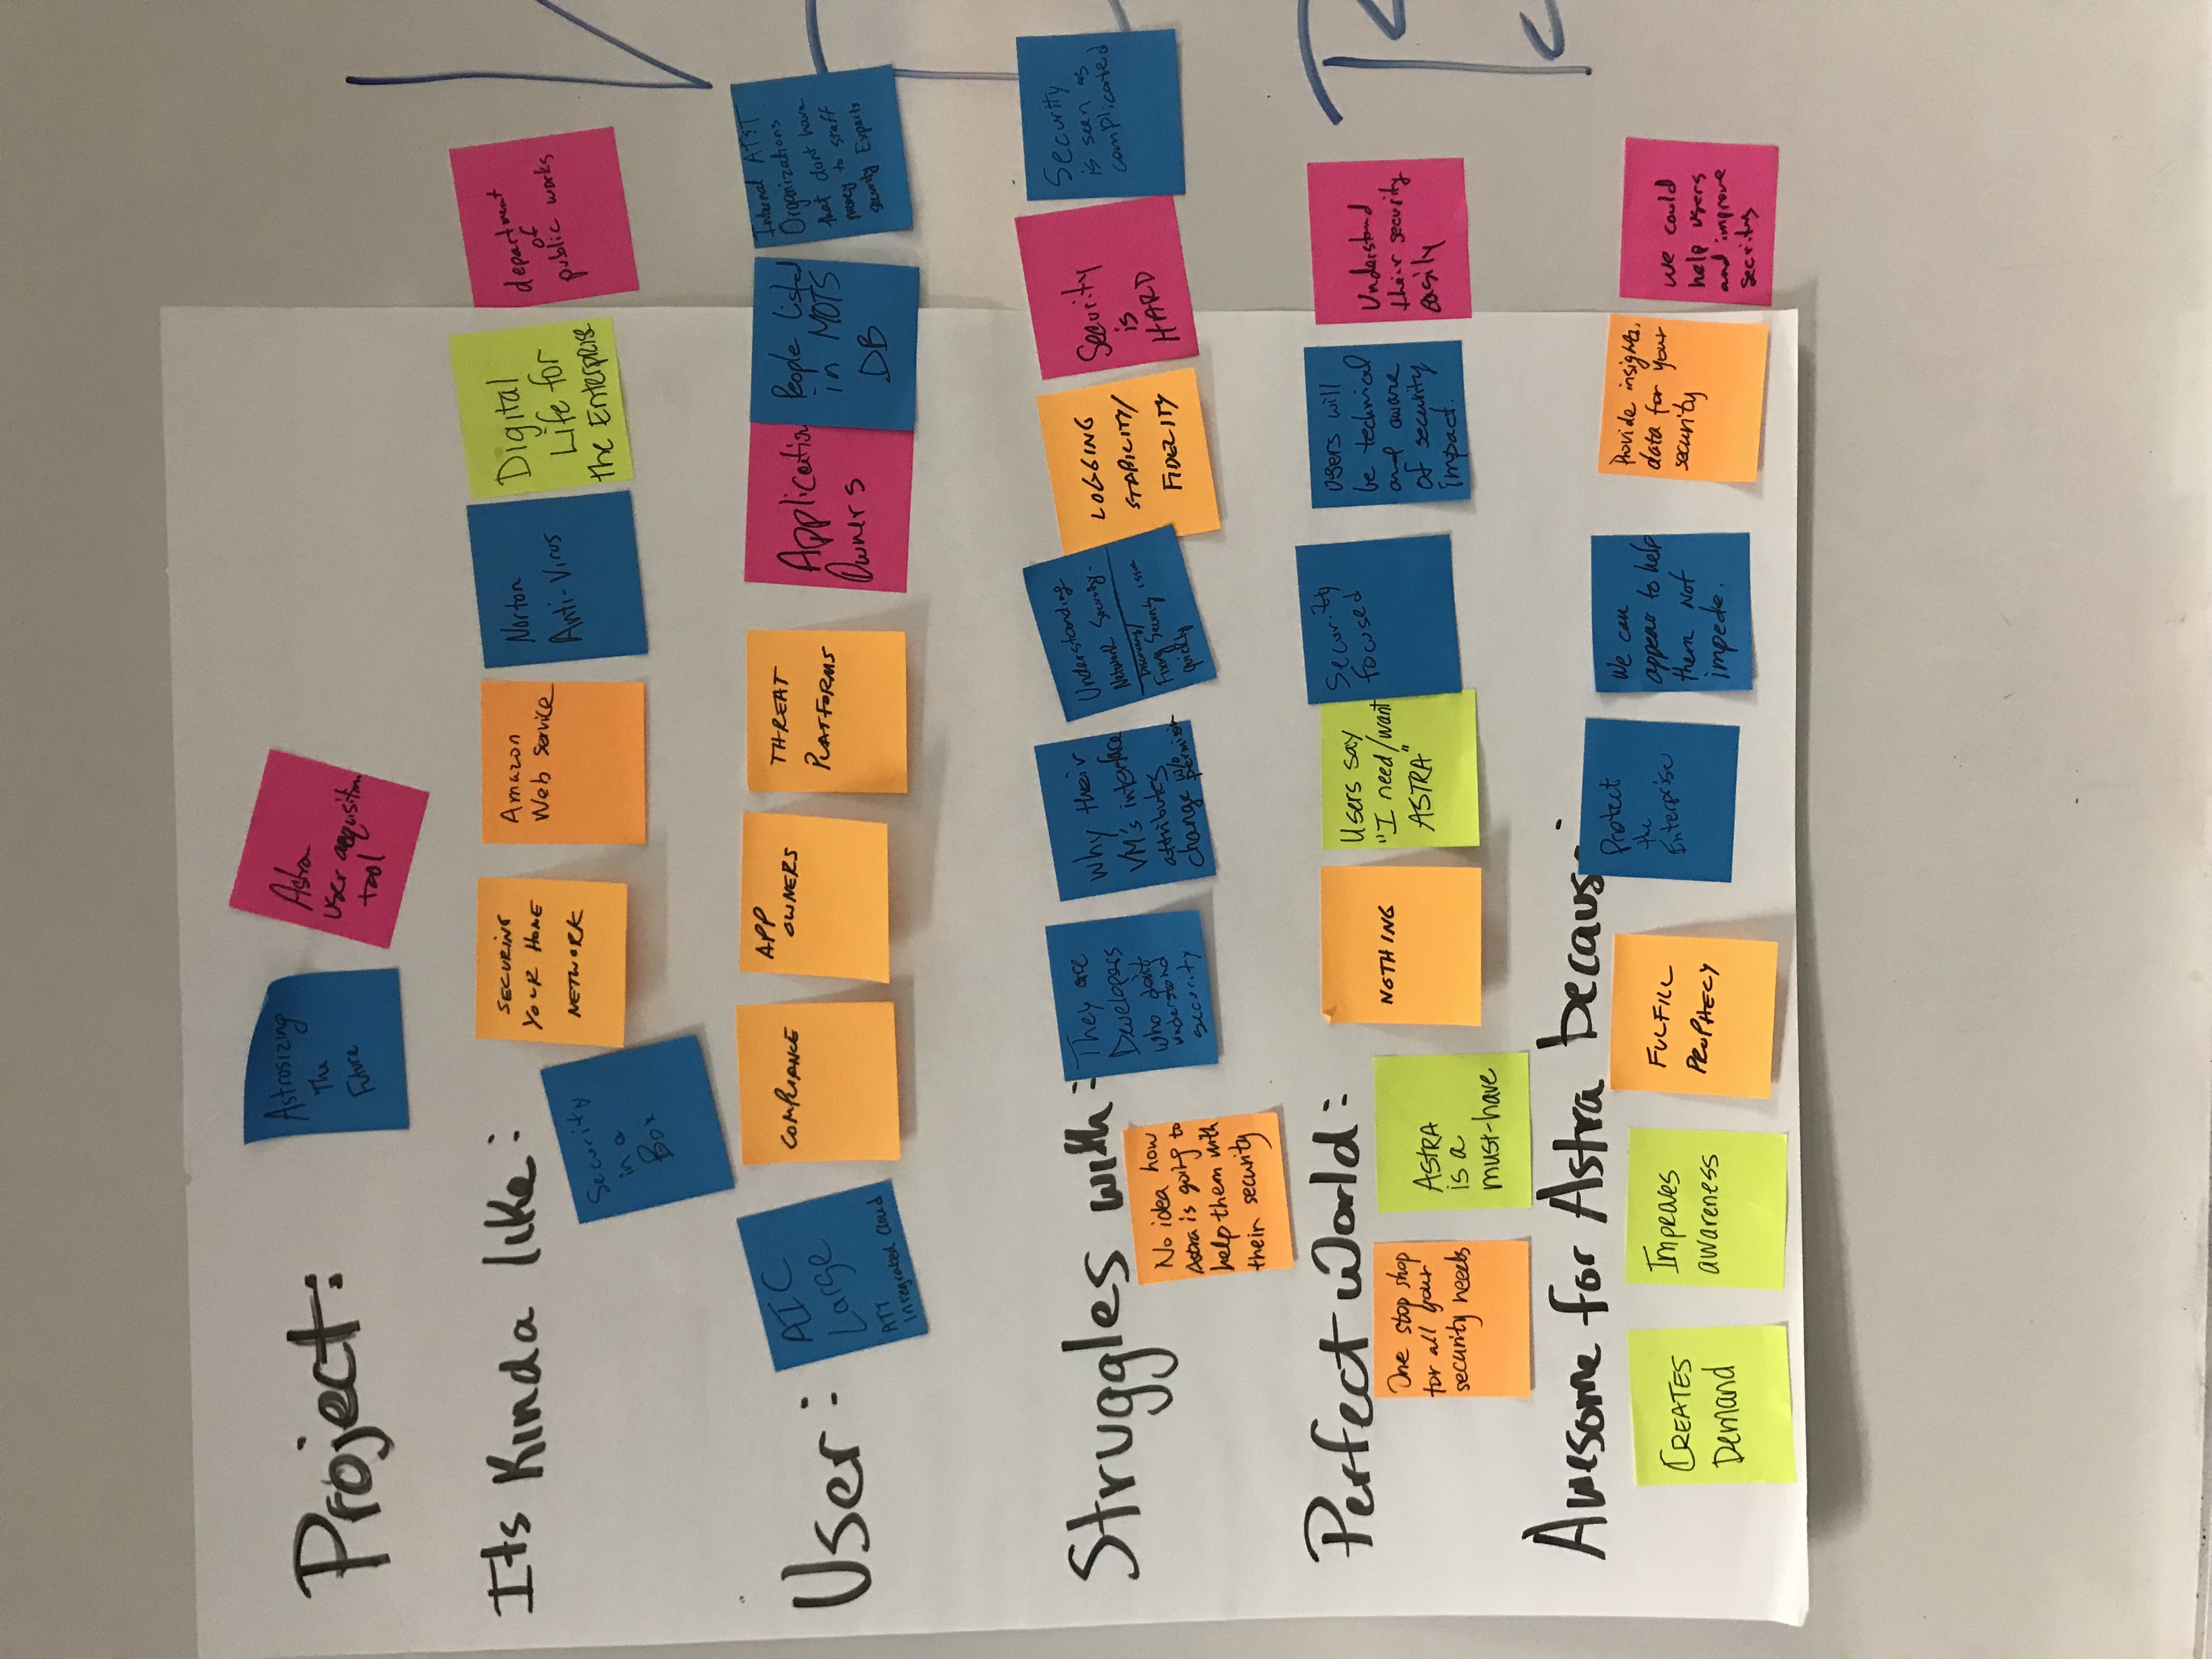 Project:
Astrosizing
The
Future
Astra
User acquisition
tool
Its Kinda like:
Security
in a
Box
SECURING
YOUR HOME
NETWORK
Amazon
Web Service
Norton
Anti-Virus
Digital
Life for
the Enterprise
department
of
public works
User:
AIC
Large
ATT
Integrated Cloud
COMPLIANCE
APP
OWNERS
THREAT
PLATFORMS
Application
Owners
People Listed
in MOTS
DB
Internal AT&T
Organizations
that dont have
money to staff
security Experts
Struggles with:
No idea how
Astra is going to
help them with
their security
They are
Developers
who don't
understand
security
Why their
VM's interface
attributes
change w/o
permission
Understanding
Network Security.
Discovery/
Fixing Security issue
quickly
LOGGING
STABILITY/
FIDELITY
Security
is
HARD
Security
is seen as
complicated
Perfect World:
One stop shop
for all your
security needs
ASTRA
is a
must-have
NOTHING
Users say
"I need/want
ASTRA"
Security
focused
Users will
be technical
and aware
of security
impact.
Understand
their security
easily
Awesome for Astra becaus
CREATES
Demand
Improves
awareness
FULFILL
PROPHECY
Protect
the
Enterprise
We can
appear to help
them not
impede.
Provide insights,
data for your
security
we could
help users
and improve
security